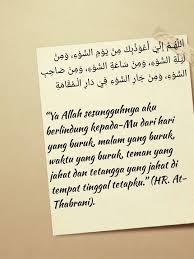 اَللّٰهُمَّ إِنِّي أَعُوْذُبِكَ مِنْ يَوْمِ السُّوْءِ، وَمِنْ
لَيْلَةِ السُّوْءِ، وَمِنْ سَاعَةِ السُّوْءِ، وَمِنْ صَاحِبِ
السُّوْءِ، وَمِنْ جَارِ السُّوْءِ فِي دَارِ الْمُقَامَةِ
"Ya Allah sesungguhnya aku
berlindung kepada-Mu dari hari
yang buruk, malam yang buruk,
waktu yang buruk, teman yang
jahat dan tetangga yang jahat di
tempat tinggal tetapku." (HR. At-
Thabrani).